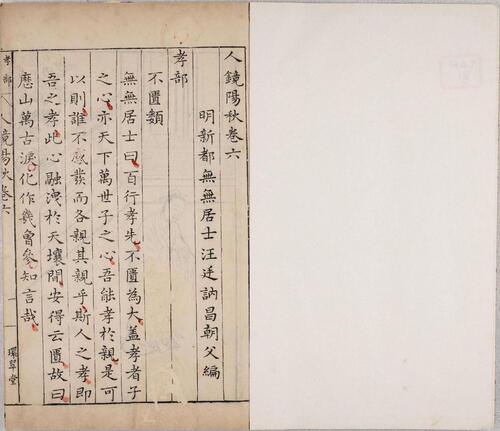 人鏡陽秋卷六
明新都無無居士汪廷訥昌朝父編
孝部
不匱類
無無居士曰百行孝先不匱為大蓋孝者子
之心亦天下萬世子之心吾能孝於親是可
以則誰不感發而各親其親乎斯人之孝即
吾之孝此心融洩於天壤間安得云匱故曰
歷山萬古淚化作幾曾參知言哉
孝部
人鏡陽秋卷六
一
環翠堂